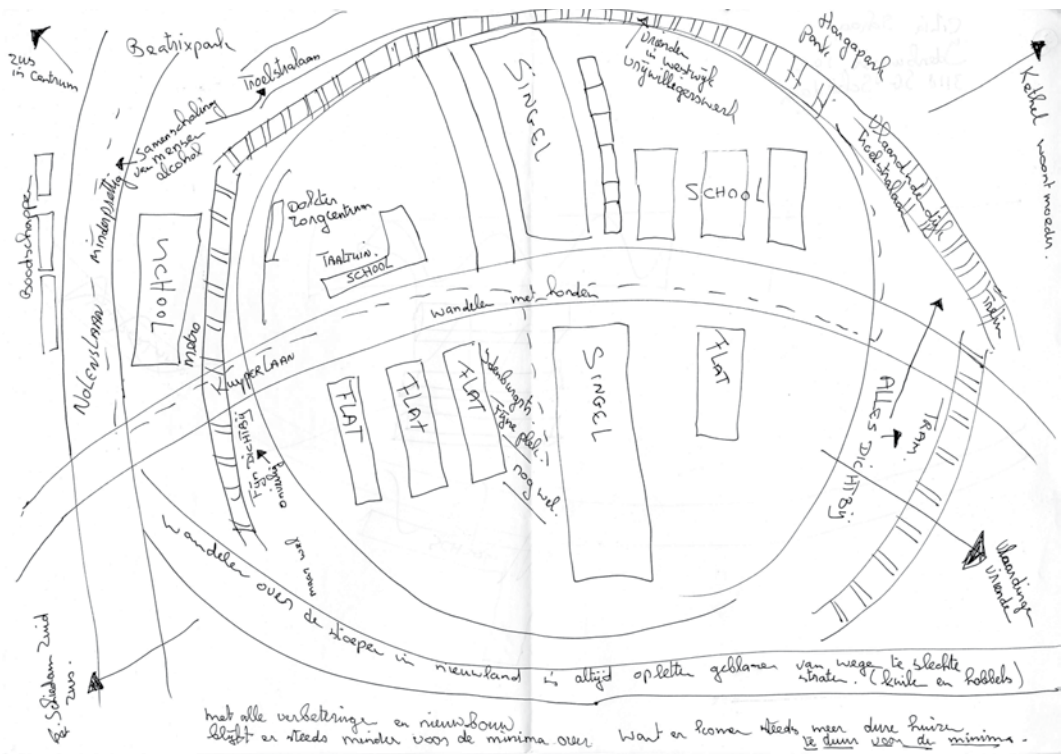 zus
in centrum
Beatrixpark
Troelstralaan
Samenscholing
van mensen
alcohol
minderprettig
NOLENSLAAN
Boodschappen
SCHOOL
metro
Dokter
zorgcentrum
TAALTUIN.
SCHOOL
SINGEL
vrienden
in westwijk
vrijwilligerswerk
SCHOOL
Park.
Kethel woont moeder.
Vlaardinger dijk
Troelstralaan
wandelen met honden
KUYPERLAAN
FLAT
FLAT
FLAT
fijne plek.
nog wel.
SINGEL
FLAT
ALLES DICHTBIJ
TRAM.
FIJN DICHTBIJ
maar wel
onveilig
Vlaardingen
vriende
Schiedam Zuid
zus.
wandelen over de stoepen in nieuwland is altijd opletten geblazen van wege te slechte
straten. (kuilen en hobbels)
met alle verbeteringe en nieuwbouw
blijft er steeds minder voor de minima over
want er komen steeds meer dure huizen
te duur voor de minima.